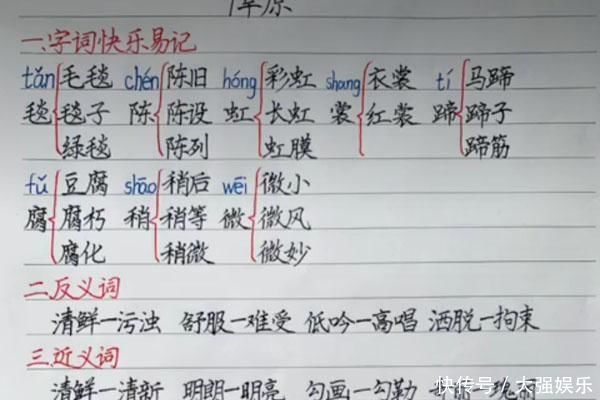 原
一.字词快乐易记
tǎn 毛毯 chén 陈旧 hóng 彩虹 shang 衣裳 tí 马蹄
毯 毯子 陈 陈设 虹 长虹 裳 红裳 蹄 蹄子
绿毯 陈列 虹膜 蹄筋
fǔ 豆腐 shāo 稍后 wēi 微小
腐 腐朽 稍 稍等 微 微风
腐化 稍微 微妙
二.反义词
清鲜—污浊 舒服—难受 低吟—高唱 洒脱—拘束
三.近义词
清鲜—清新 明朗—明亮 勾画—勾勒
快传号/大强娱乐